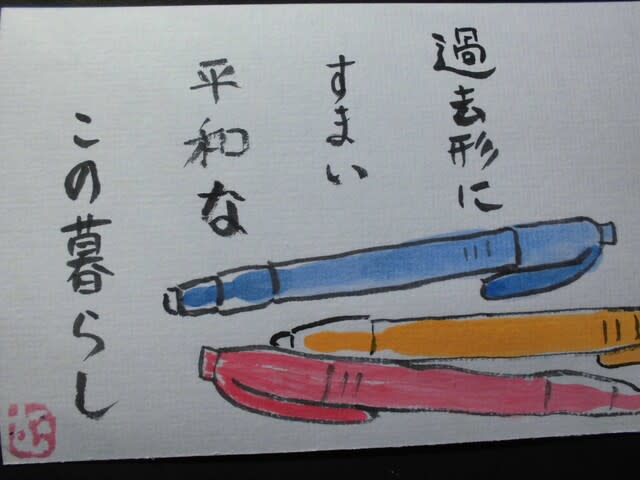 過去形に
すまい
平和な
この暮らし